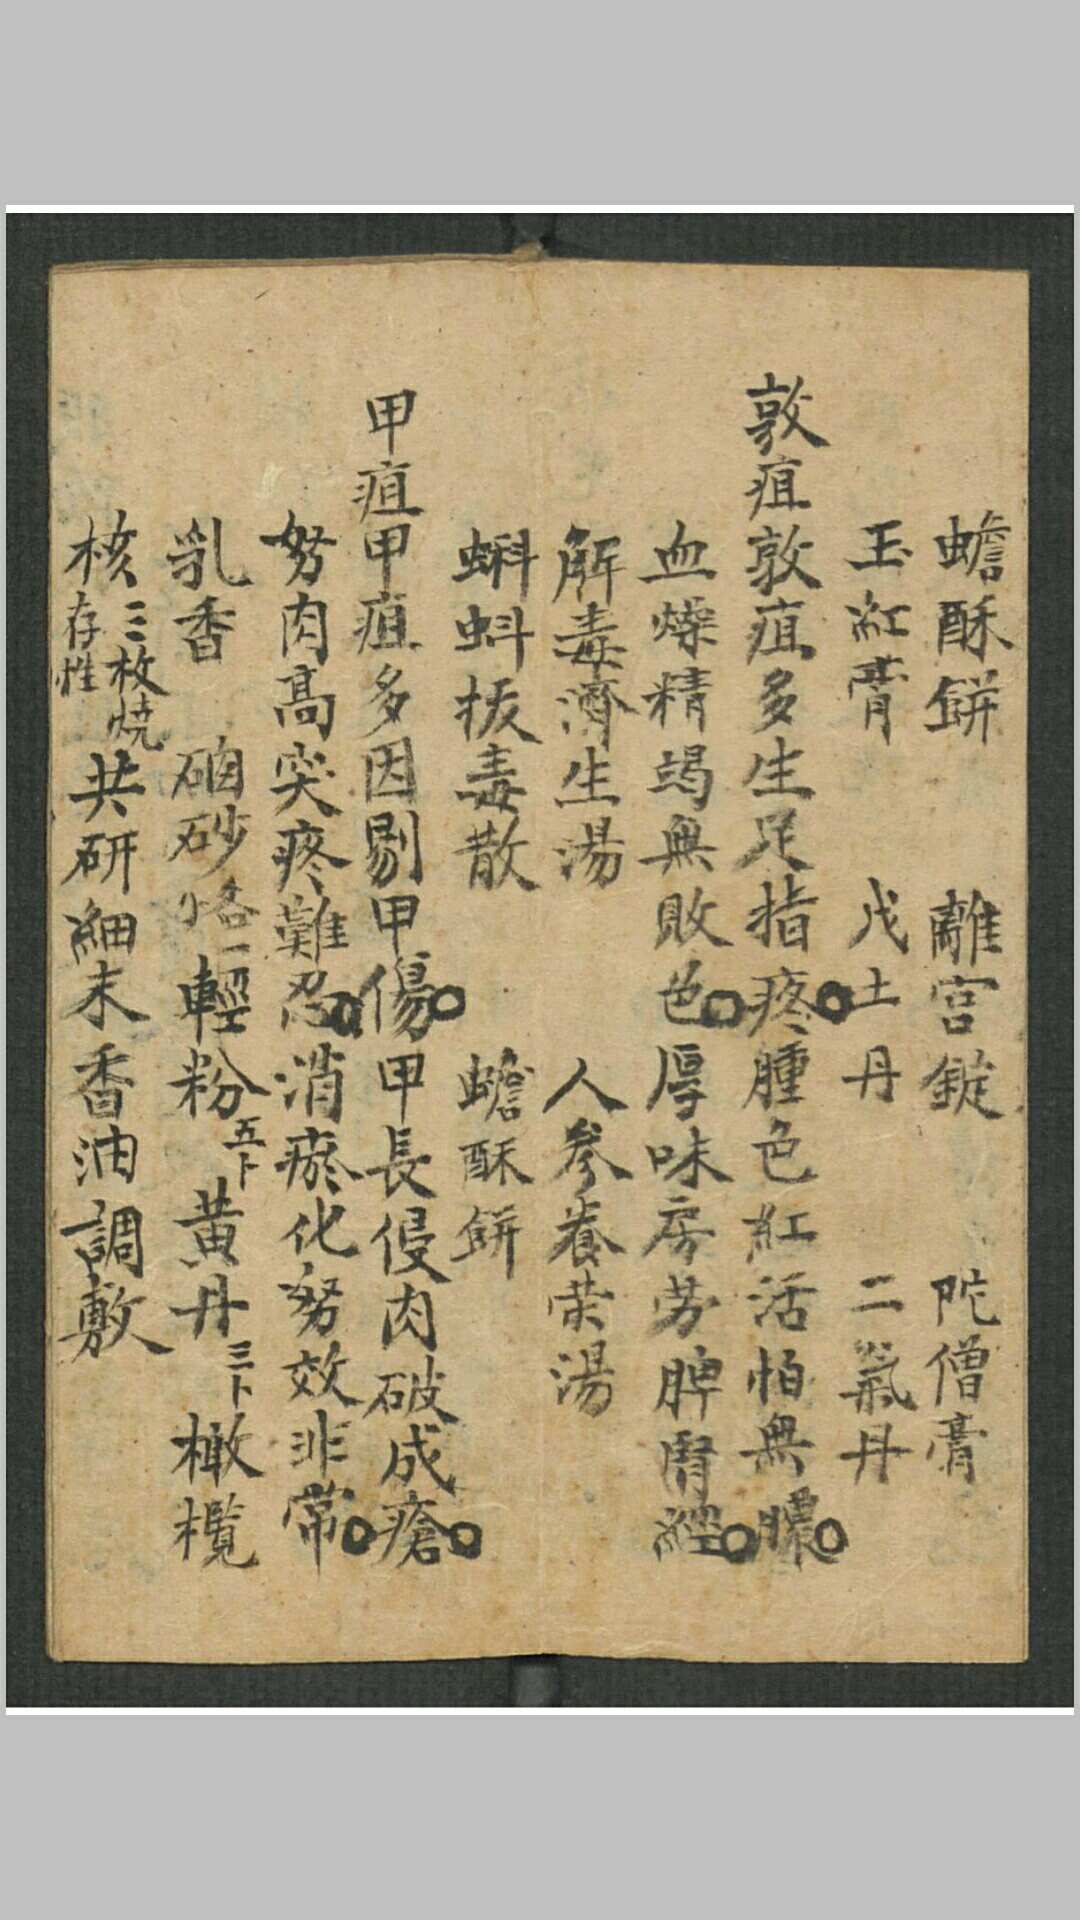 蟾酥餅 離宮錠 陀僧膏
玉紅膏 戊土丹 二氣丹
敦疽敦疽多生足指疼○腫色紅活怕無膿○
血燥精竭無敗色○厚味房劳脾腎經○
解毒濟生湯 人參養荣湯
蝌蚪拔毒散 蟾酥餅
甲疽甲疽多因剔甲傷○甲長侵肉破成瘡○
努肉高突疼難忍○消瘀化努效非常○
乳香 硇砂 一輕粉五卜 黄丹三卜 橄欖
核三枚燒存性共研細末香油調敷